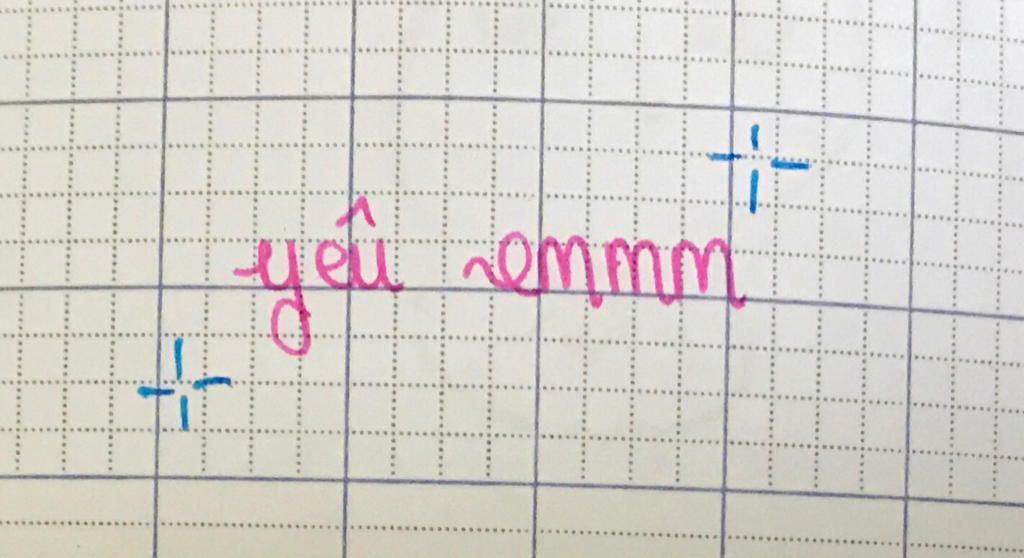 yêu emmm